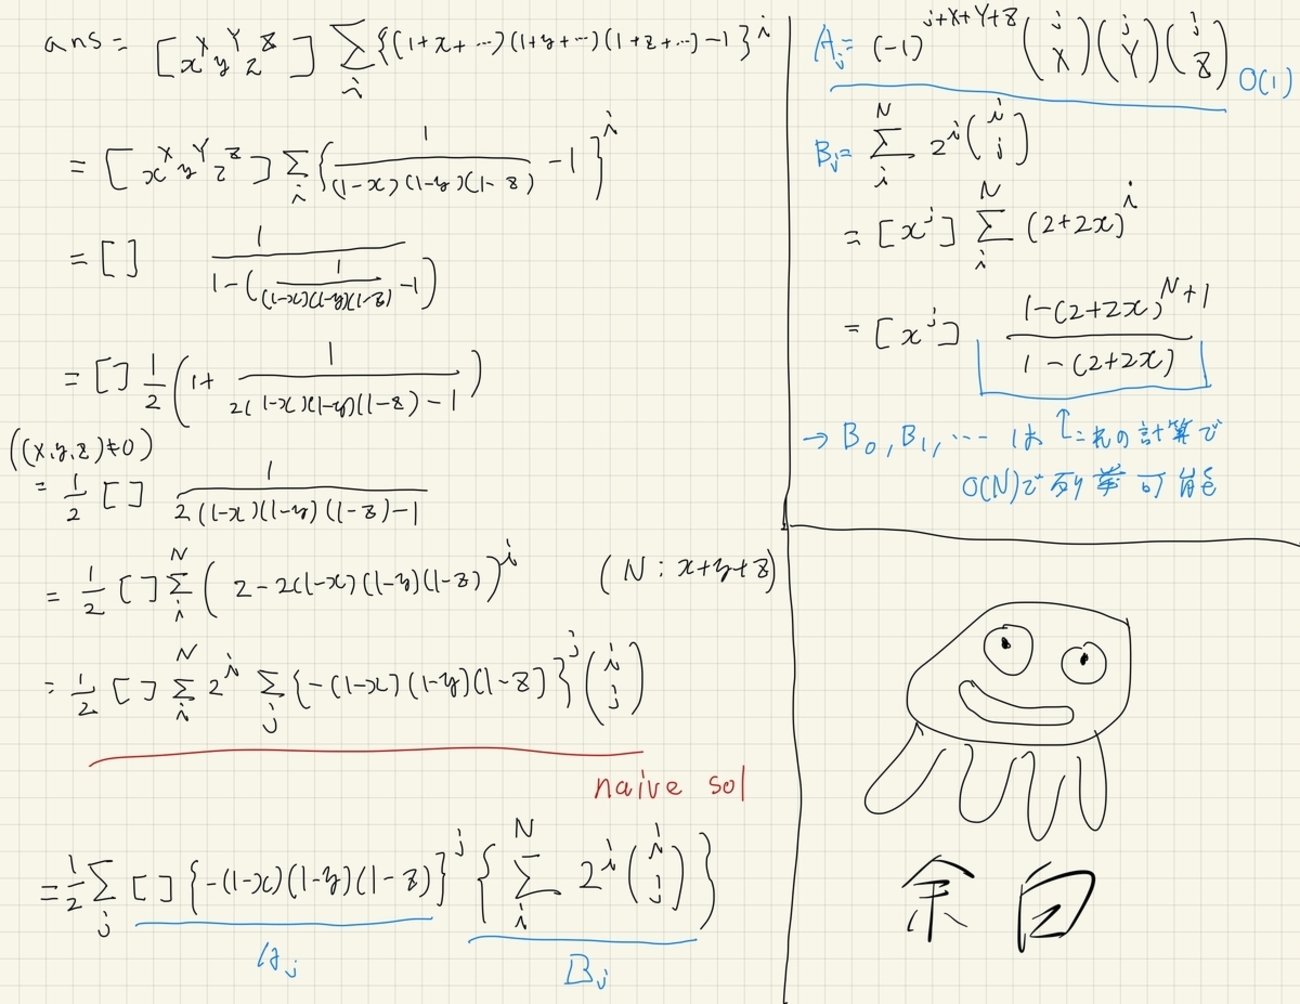 ans = [x^X y^Y z^Z] Σ_i {(1+x+…)(1+y+…)(1+z+…)-1}^i
= [x^X y^Y z^Z] Σ_i { 1/((1-x)(1-y)(1-z)) -1 }^i
= [] 1/(1-(1/((1-x)(1-y)(1-z)) -1))
= [] 1/2 (1+ 1/(2(1-x)(1-y)(1-z)-1))
((X,y,z)≠0)
= 1/2 [] 1/(2(1-x)(1-y)(1-z)-1)
= 1/2 [] Σ_i^N (2-2(1-x)(1-y)(1-z))^i (N : x+y+z)
= 1/2 [] Σ_i^N 2^i Σ_j {-(1-x)(1-y)(1-z)}^j (i j)
naive sol
= 1/2 Σ_j [] {-(1-x)(1-y)(1-z)}^j {Σ_i^N 2^i (i j)}
A_j B_j
A_j = (-1)^{j+X+Y+Z} (j X)(j Y)(j Z) O(1)
B_j = Σ_i^N 2^i (i j)
= [x^j] Σ_i^N (2+2x)^i
= [x^j] (1-(2+2x)^{N+1})/(1-(2+2x))
→ B_0, B_1, … は ↑これの計算で
O(N)で列挙可能
余白